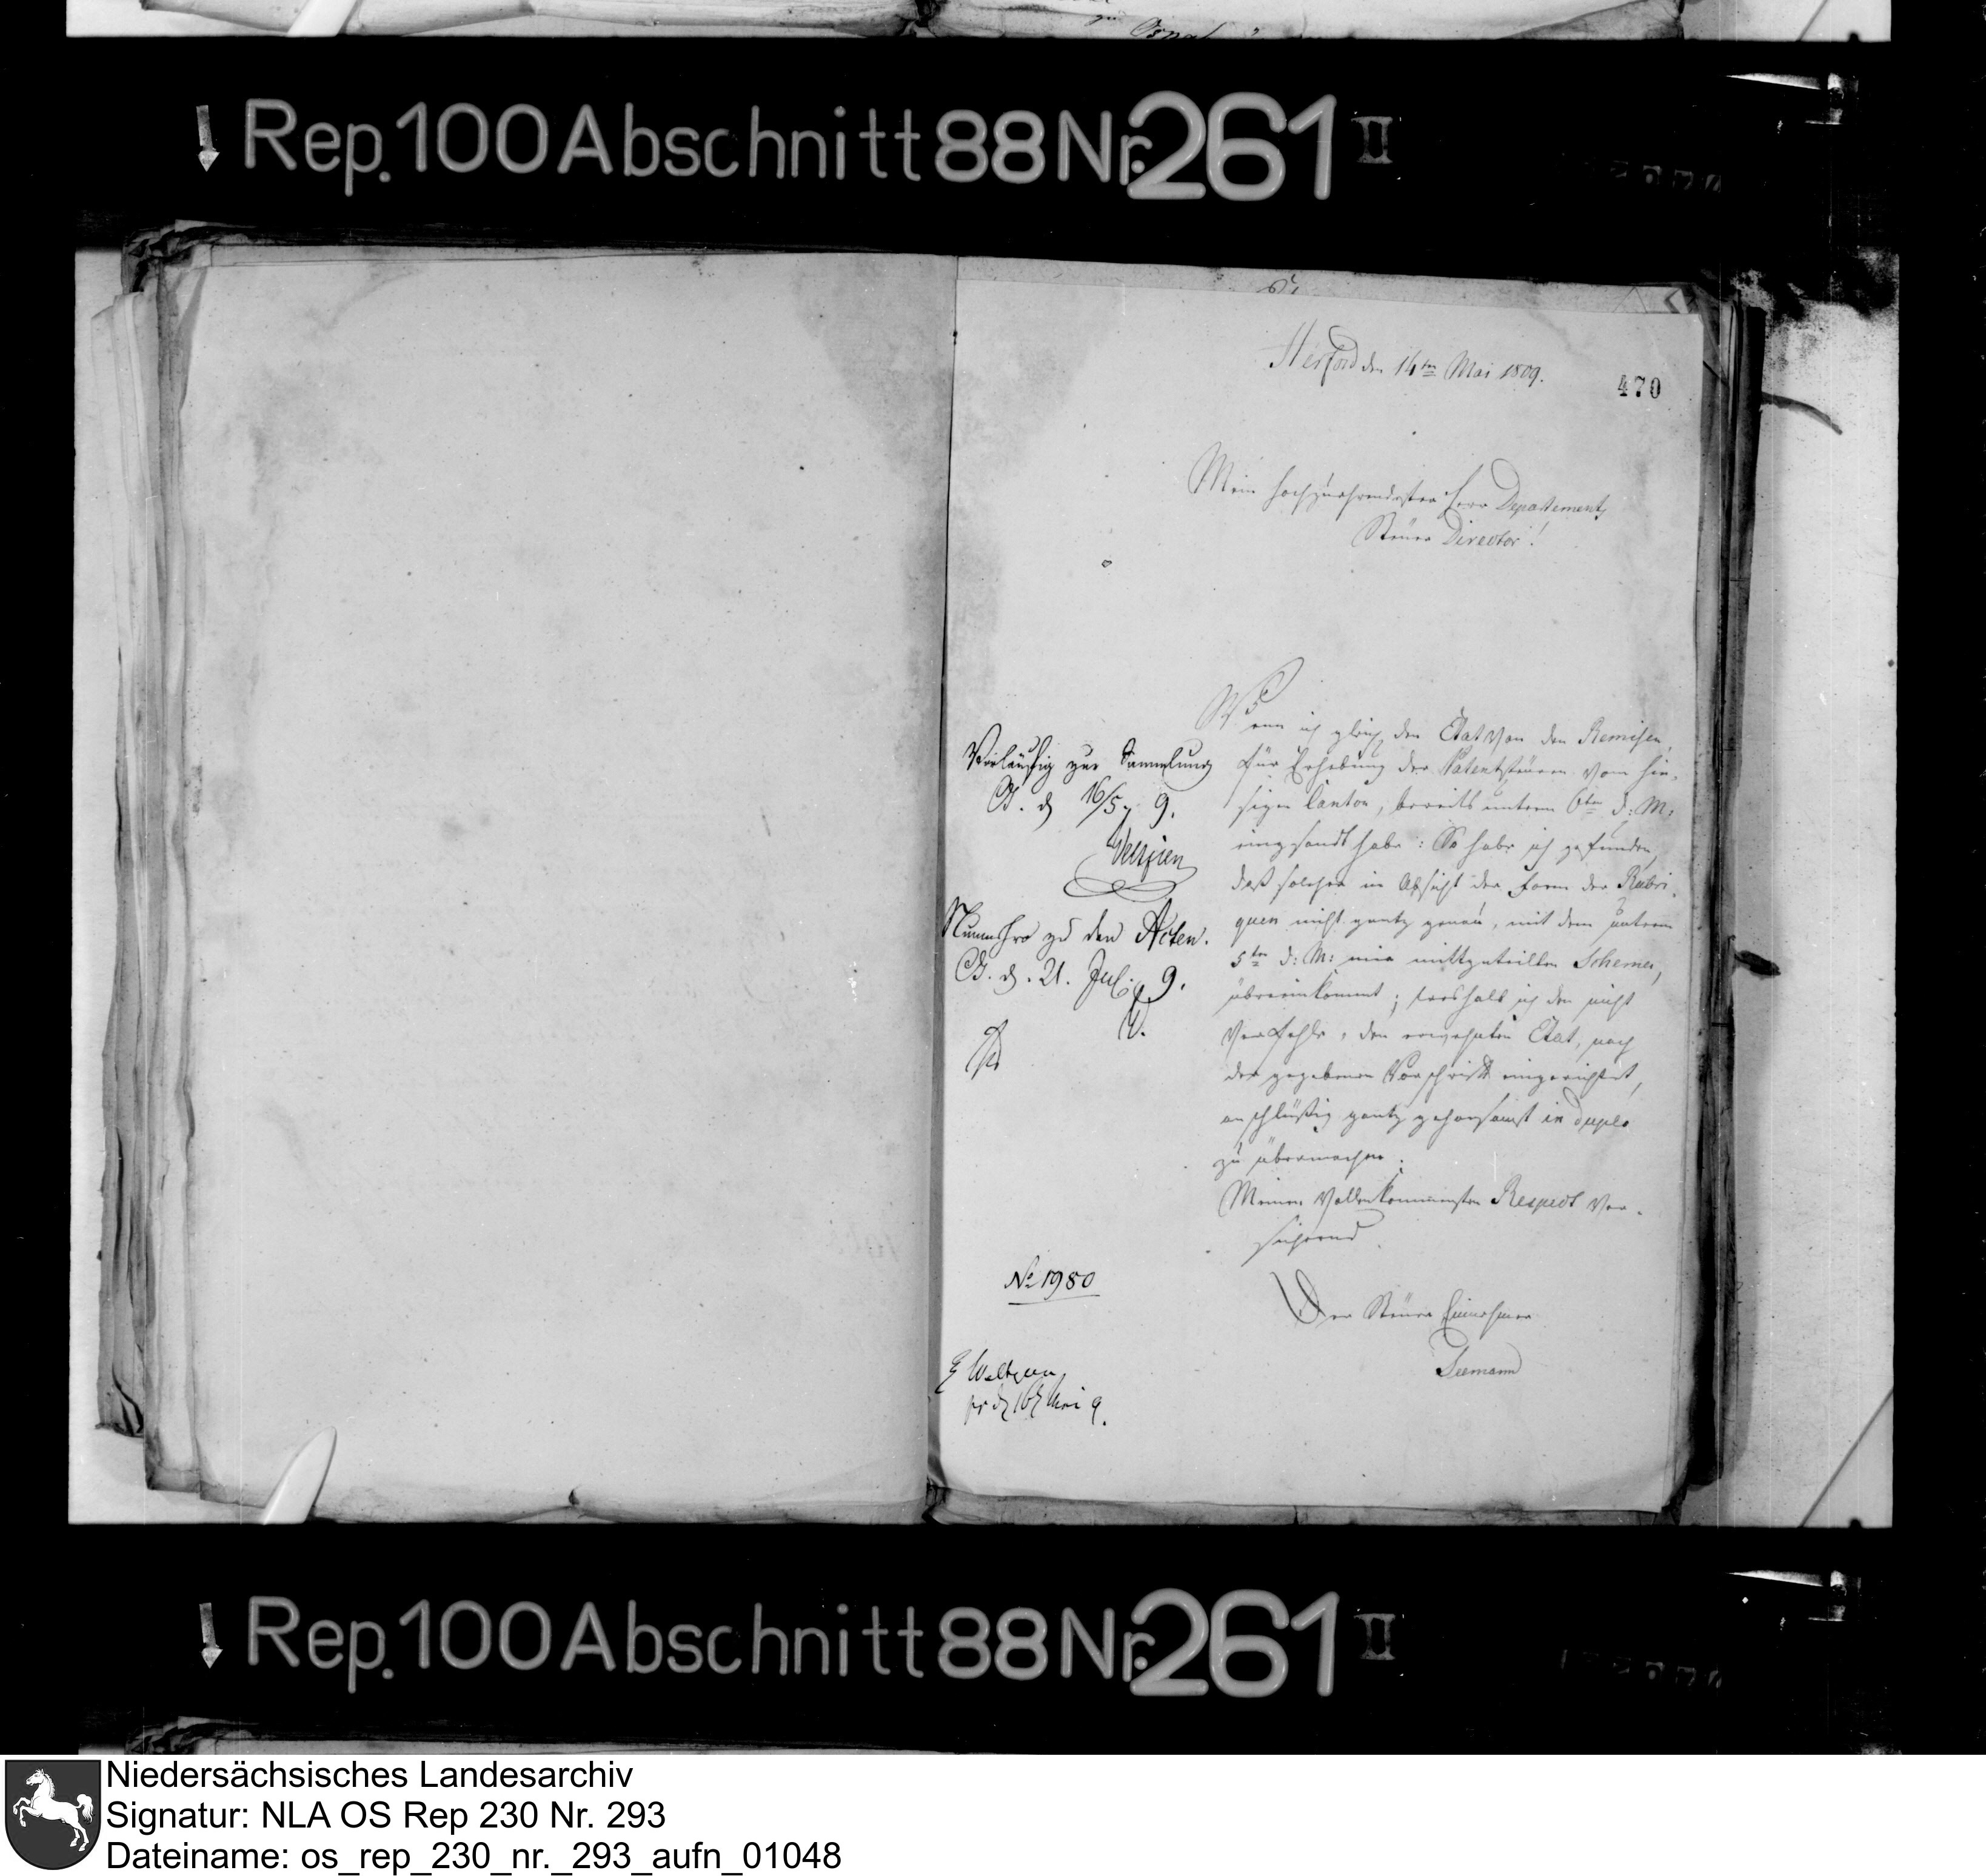 Rep. 100 Abschnitt 88 Nr. 261 II
Herford den 14ten Mai 1809.
470
Mein hochzuehrendster Herr Departements
Steuer Director!
Wenn ich gleich den Etat von den Remisen,
für Erhebung der Patentsteuer vom hie-
sigen Canton, bereits unterm 6ten d: M:
eingesandt habe: So habe ich gefunden,
daß solcher in Absicht der Form der Rubri-
quen nicht gantz genau, mit dem unterm
5ten d: M: mir mittgeteilten Schema,
übereinkommt; weshalb ich den nicht
verfehle, den erwehnten Etat, nach
der gegebenen Vorschrift eingerichtet,
anschlüßig gantz gehorsamst in duplo
zu übermachen.
Meinen vollenkommensten Respect ver-
sichrend
Der Steuer Einnehmer
Seemann
Vorläufig zur Sammlung
O. d. 16/5 9.
Nunmehro zu den Acten.
O. d. 21. Jul. 9.
No 1980
pr d 16 Mai 9.
Rep. 100 Abschnitt 88 Nr. 261 II
Niedersächsisches Landesarchiv
Signatur: NLA OS Rep 230 Nr. 293
Dateiname: os_rep_230_nr._293_aufn_01048